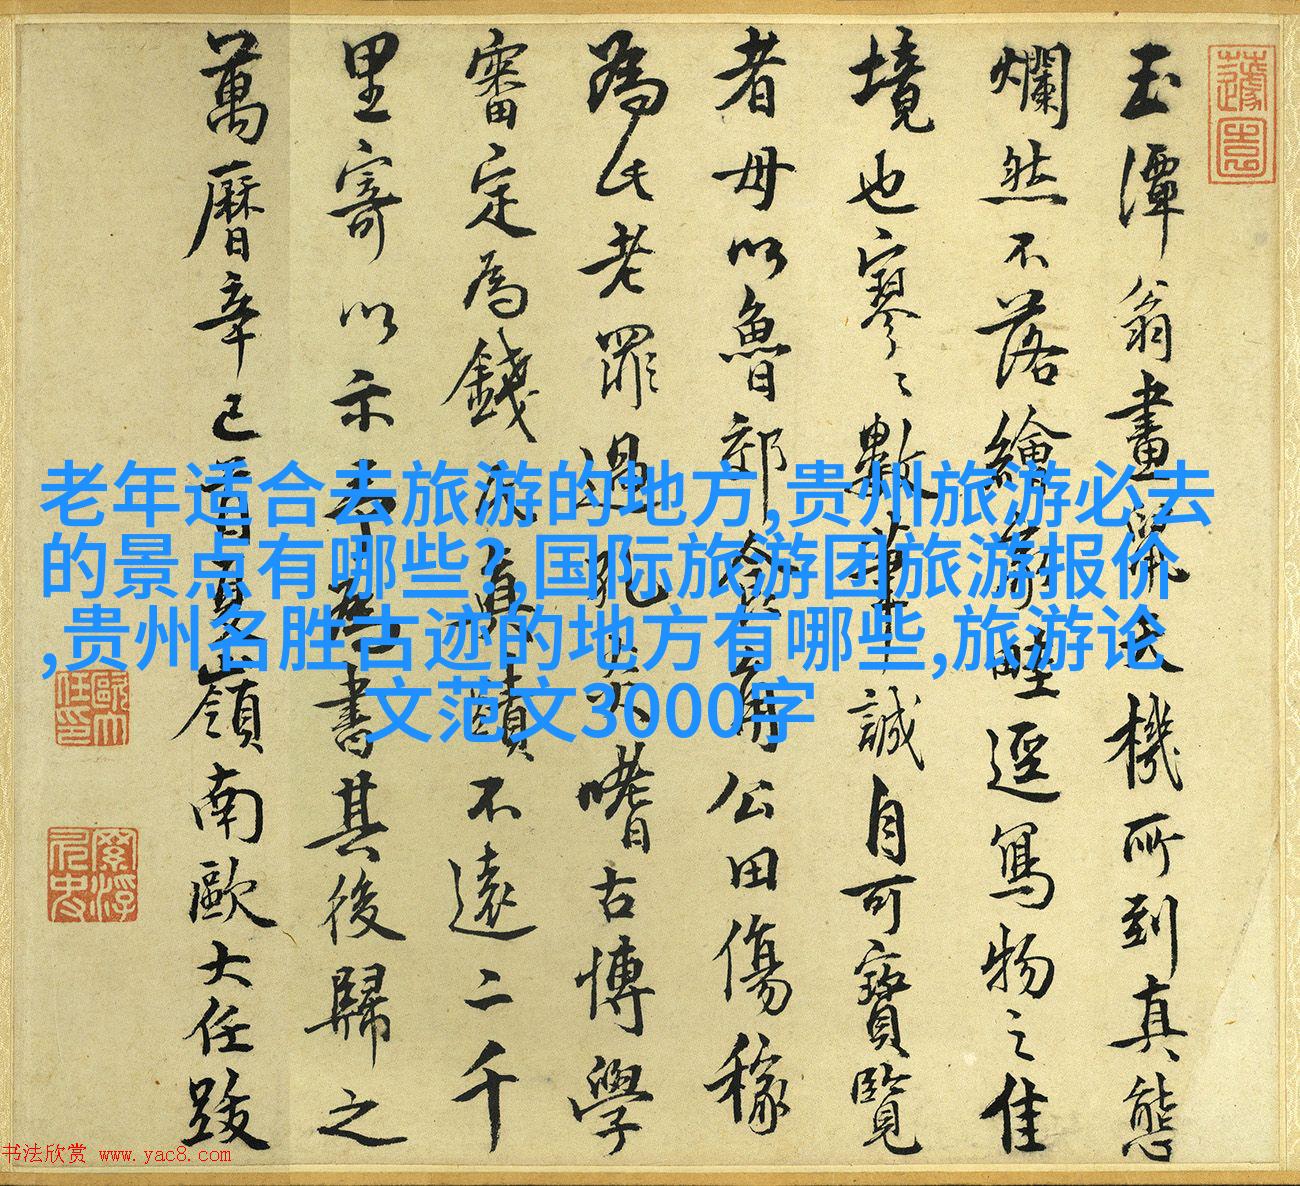 玉潭翁畫鼠天機所到真態
爛然不落繪家畦逕寫物之佳
境也寥〻數筆誠自可寶覽
者毋以魯郊食角公田傷稼
為氏老罪過耶黃嗜古博學
審定為錢氏真蹟不遠二千
里寄以示余為書其後歸之
萬曆辛巳首夏嶺南歐大任跋
老年适合去旅游的地方,贵州旅游必去
的景点有哪些?,国际旅游团旅游报价
,贵州名胜古迹的地方有哪些,旅游论
文范文3000字
书法欣赏 www.yac8.com